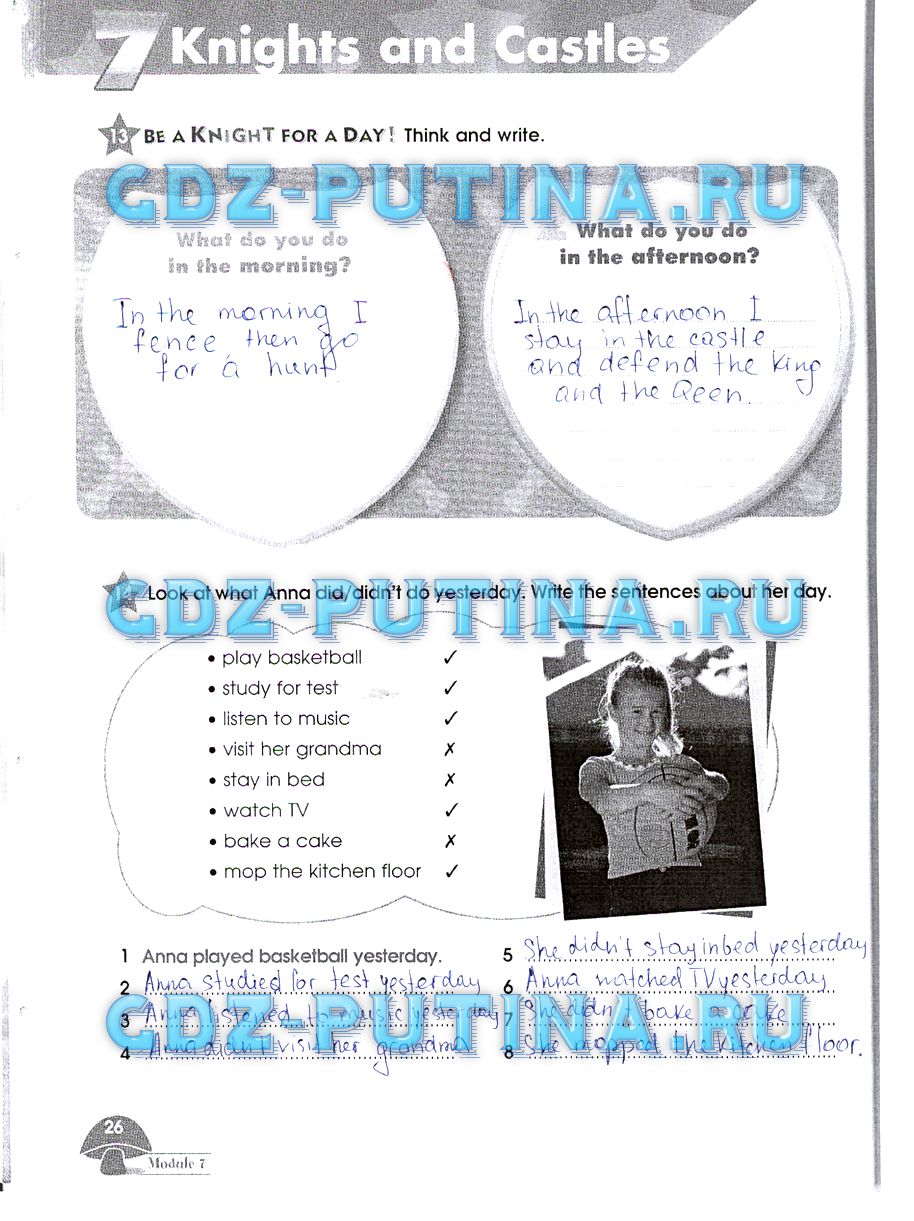 7 Knights and Castles
13 BE A KNIGHT FOR A DAY! Think and write.
GDZ-PUTINA.RU
What do you do
in the morning?
In the morning I
fence then go
for a hunt
What do you do
in the afternoon?
In the afternoon I
stay in the castle
and defend the king
and the Qeen.
Look at what Anna did/didn't do yesterday. Write the sentences about her day.
GDZ-PUTINA.RU
• play basketball ✓
• study for test ✓
• listen to music ✓
• visit her grandma ✗
• stay in bed ✗
• watch TV ✓
• bake a cake ✗
• mop the kitchen floor ✓
1 Anna played basketball yesterday.
2 Anna studied for test yesterday
3 Anna listened to music yesterday
4 Anna didn't visit her grandma
5 She didn't stay in bed yesterday
6 Anna watched TV yesterday
7 She didn't bake a cake
8 She mopped the kitchen floor.
GDZ-PUTINA.RU
26
Module 7